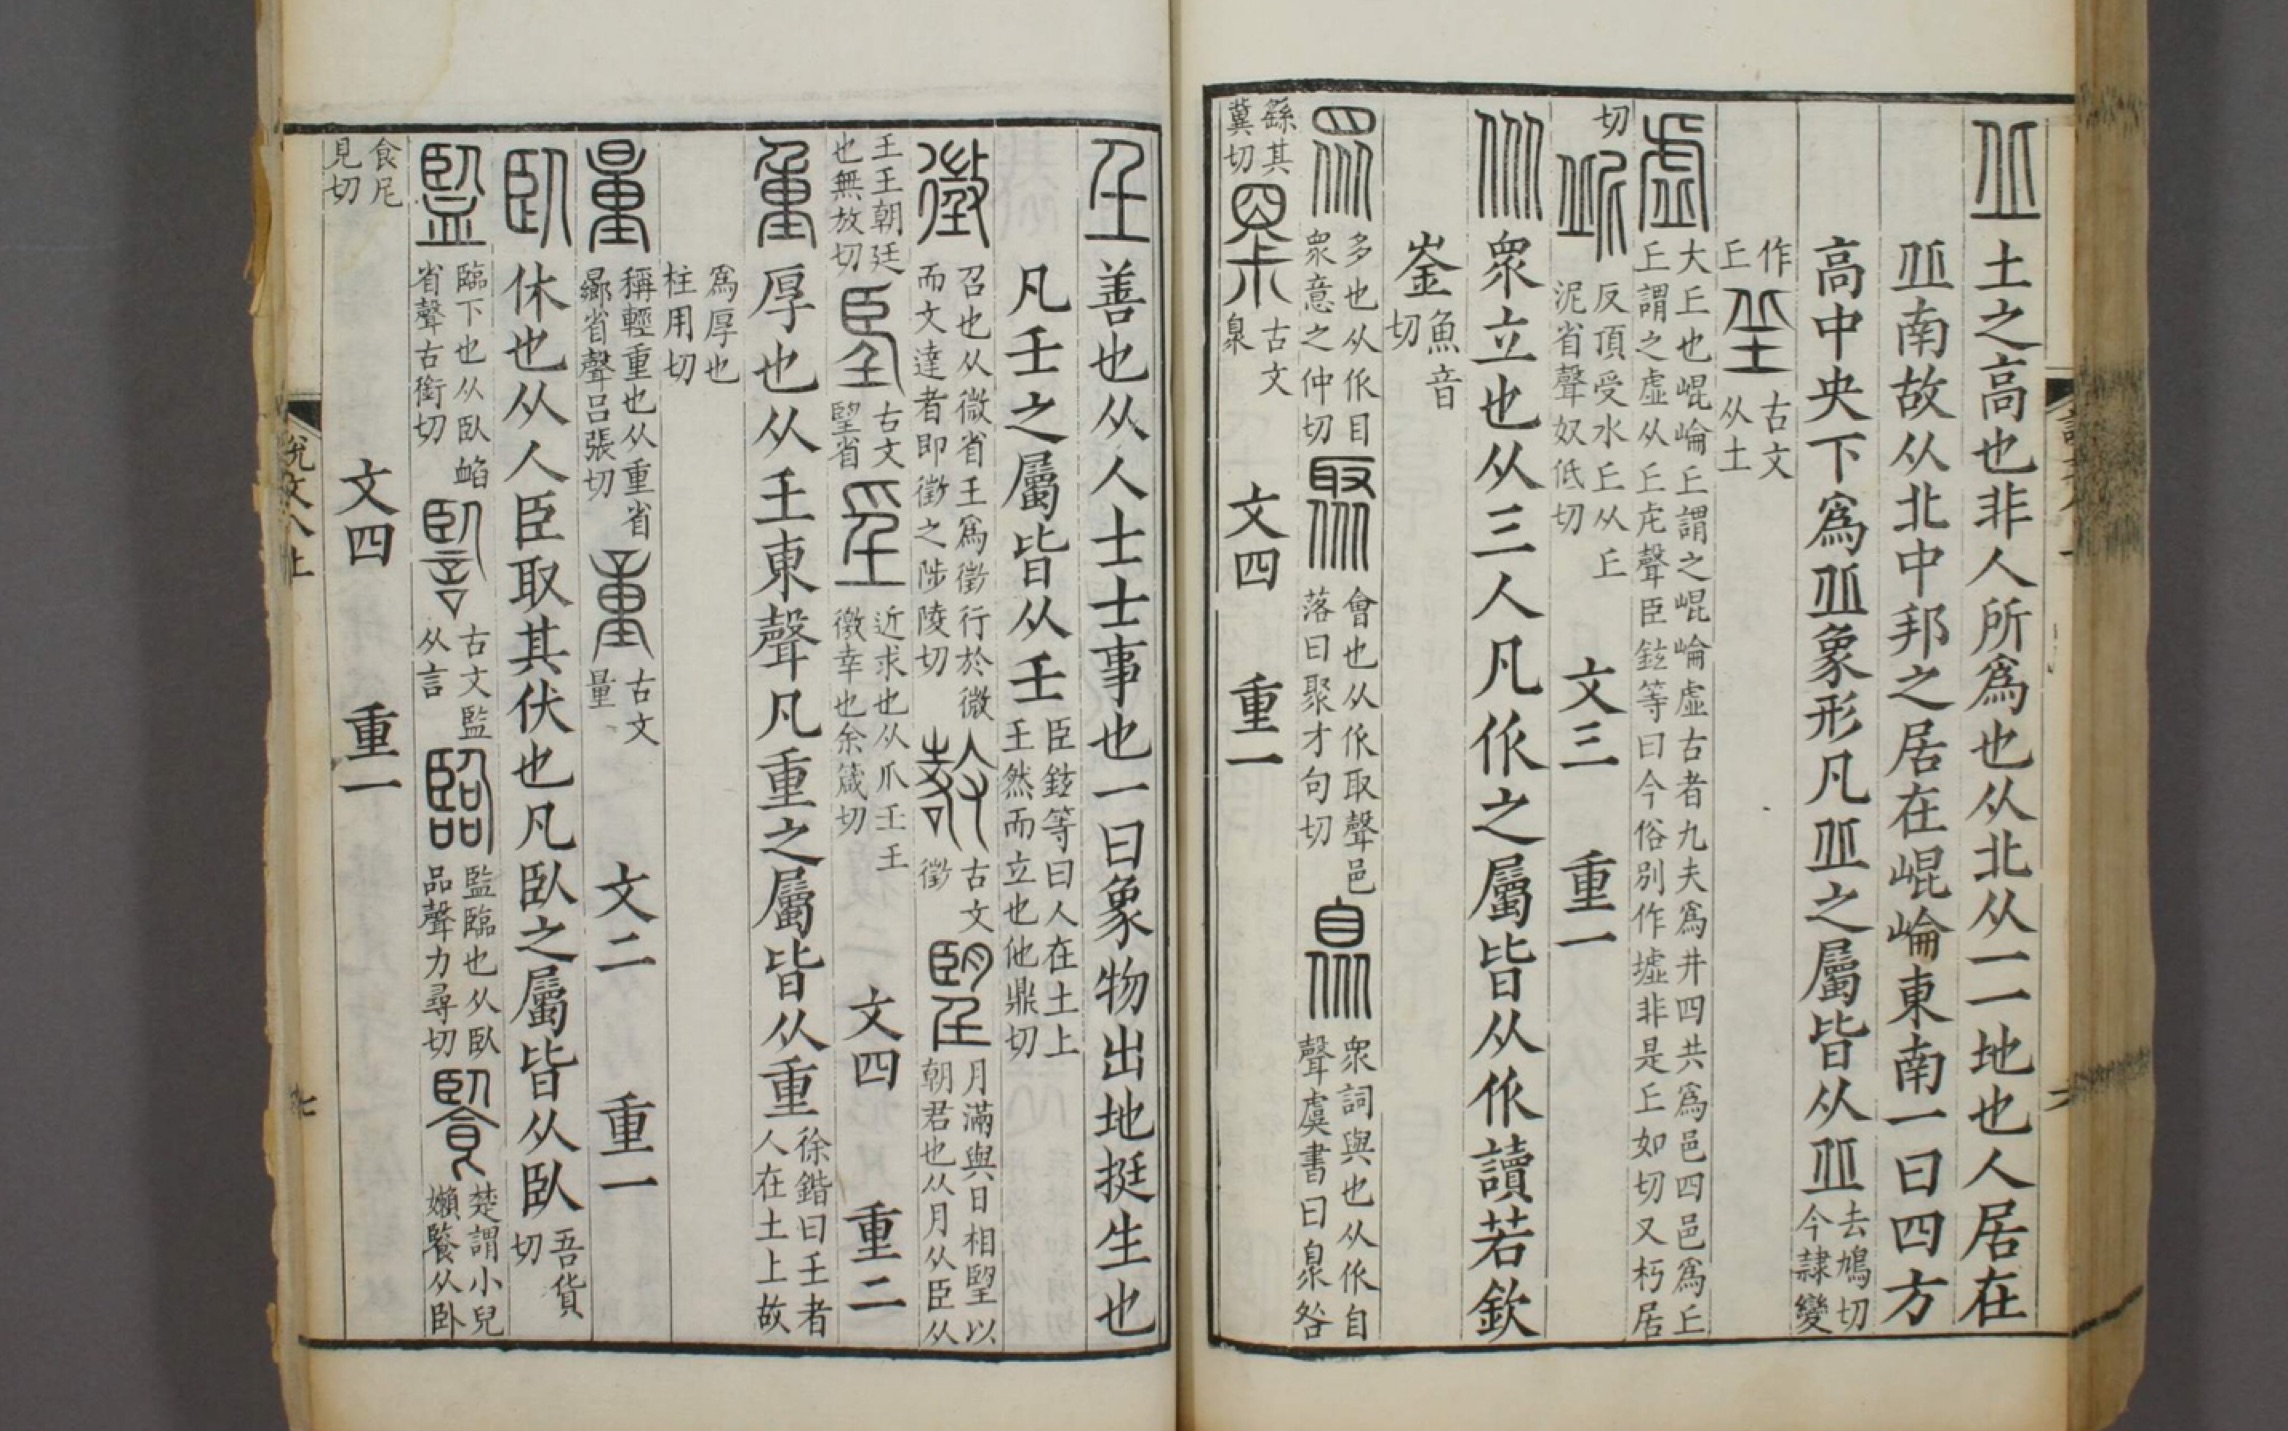 丠土之高也非人所爲也从北从一一地也人居在
丠南故从北中邦之居在崐崘東南一曰四方
高中央下爲丠象形凡丠之屬皆从丠去鳩切今隸變
作丘 𡊣古文从土
虛大丘也崐崘丘謂之崐崘虛古者九夫爲井四共爲邑四邑爲丘丘謂之虛从丘虍聲臣鉉等曰今俗別作墟非是丘如切又朽居
切 𡰥反頂受水丘从丘泥省聲奴低切 文三 重一
㐺衆立也从三人凡㐺之屬皆从㐺讀若欽
崟魚音切
衆多也从㐺目衆意之仲切 聚會也从㐺取聲邑落曰聚才句切 臮衆詞與也从㐺自聲虞書曰臮咎
繇其冀切 古文臮 文四 重一
𡈼善也从人士士事也一曰象物出地挺生也
凡𡈼之屬皆从𡈼臣鉉等曰人在土上𡈼然而立也他鼎切
徵召也从微省𡈼爲徵行於微而文達者即徵之陟陵切 古文徵 朢月滿與日相朢以朝君也从月从臣从
𡈼𡈼朝廷也無放切 古文朢省 㸒近求也从爪𡈼𡈼徼幸也余箴切 文四 重二
重厚也从𡈼東聲凡重之屬皆从重徐鍇曰𡈼者人在土上故
爲厚也柱用切
量稱輕重也从重省曏省聲呂張切 古文量 文二 重一
臥休也从人臣取其伏也凡臥之屬皆从臥吾貨切
監臨下也从臥䘓省聲古銜切 古文監从言 臨監臨也从臥品聲力尋切 䬶楚謂小兒嬾䬶从臥
食尼見切 文四 重一
說文八上
七